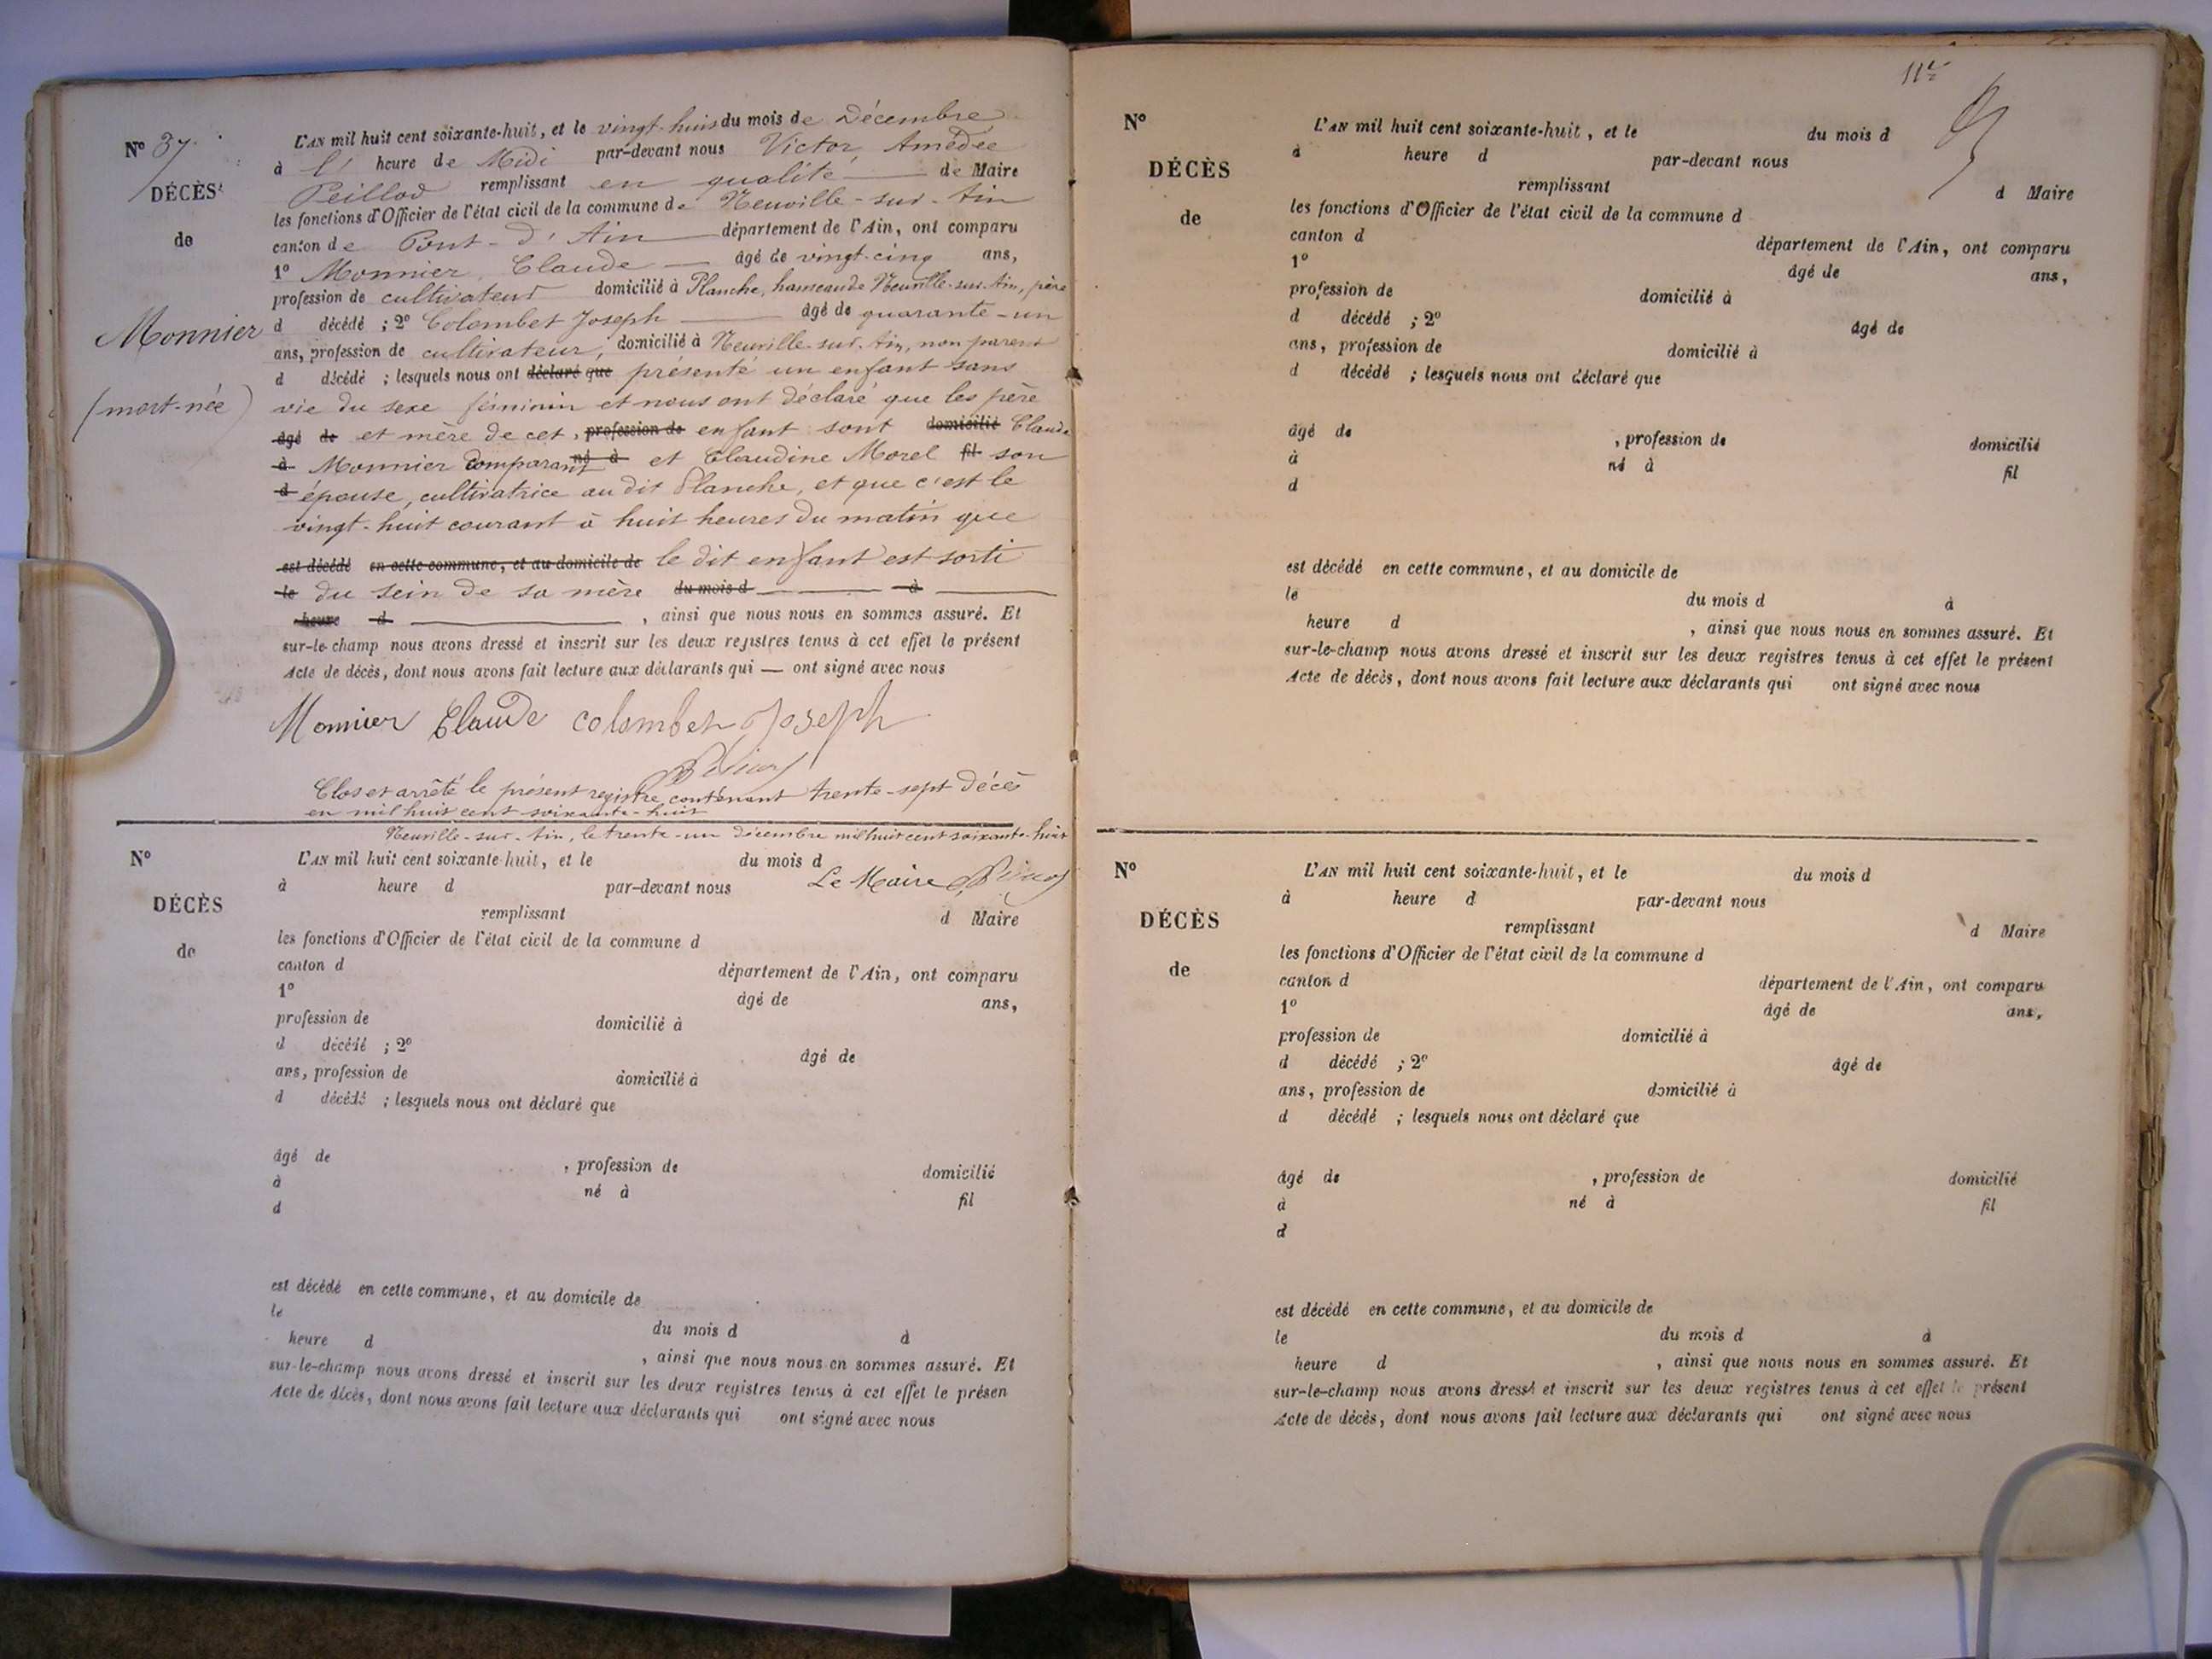 N° 37
DÉCÈS
de
Monnier
(mort-née)
L'AN mil huit cent soixante-huit, et le vingt-huit du mois de Décembre
à l' heure de Midi par-devant nous Victor, Amédée
Peillod remplissant en qualité de Maire
les fonctions d'Officier de l'état civil de la commune de Neuville-sur-Ain
canton de Pont-d'Ain département de l'Ain, ont comparu
1° Monnier, Claude âgé de vingt-cinq ans,
profession de cultivateur domicilié à Planche, hameau de Neuville-sur-Ain, père
d décédé ; 2° Colombet Joseph âgé de quarante-un
ans, profession de cultivateur, domicilié à Neuville-sur-Ain, non parent
d décédé ; lesquels nous ont déclaré que présenté un enfant sans
vie du sexe féminin et nous ont déclaré que les père
âgé de et mère de cet, profession de enfant sont domicilié Claude
à Monnier comparant né à et Claudine Morel fil son
d épouse, cultivatrice au dit Planche, et que c'est le
vingt-huit courant à huit heures du matin que
est décédé en cette commune, et au domicile de le dit enfant est sorti
le du sein de sa mère du mois d à
heure d , ainsi que nous nous en sommes assuré. Et
sur-le-champ nous avons dressé et inscrit sur les deux registres tenus à cet effet le présent
Acte de décès, dont nous avons fait lecture aux déclarants qui — ont signé avec nous
Monnier Claude colombet Joseph
Clos et arrêté le présent registre contenant trente-sept décès
en mil huit cent soixante-huit
Neuville-sur-Ain, le trente-un décembre mil huit cent soixante-huit
Le Maire
N°
DÉCÈS
de
L'AN mil huit cent soixante-huit, et le du mois d
à heure d par-devant nous
remplissant d Maire
les fonctions d'Officier de l'état civil de la commune d
canton d département de l'Ain, ont comparu
1° âgé de ans,
profession de domicilié à
d décédé ; 2° âgé de
ans, profession de domicilié à
d décédé ; lesquels nous ont déclaré que
âgé de , profession de domicilié
à né à fil
d
est décédé en cette commune, et au domicile de
le du mois d à
heure d , ainsi que nous nous en sommes assuré. Et
sur-le-champ nous avons dressé et inscrit sur les deux registres tenus à cet effet le présen
Acte de décès, dont nous avons fait lecture aux déclarants qui ont signé avec nous
N°
DÉCÈS
de
L'AN mil huit cent soixante-huit, et le du mois d
à heure d par-devant nous
remplissant d Maire
les fonctions d'Officier de l'état civil de la commune d
canton d département de l'Ain, ont comparu
1° âgé de ans,
profession de domicilié à
d décédé ; 2° âgé de
ans, profession de domicilié à
d décédé ; lesquels nous ont déclaré que
âgé de , profession de domicilié
à né à fil
d
est décédé en cette commune, et au domicile de
le du mois d à
heure d , ainsi que nous nous en sommes assuré. Et
sur-le-champ nous avons dressé et inscrit sur les deux registres tenus à cet effet le présent
Acte de décès, dont nous avons fait lecture aux déclarants qui ont signé avec nous
N°
DÉCÈS
de
L'AN mil huit cent soixante-huit, et le du mois d
à heure d par-devant nous
remplissant d Maire
les fonctions d'Officier de l'état civil de la commune d
canton d département de l'Ain, ont comparu
1° âgé de ans,
profession de domicilié à
d décédé ; 2° âgé de
ans, profession de domicilié à
d décédé ; lesquels nous ont déclaré que
âgé de , profession de domicilié
à né à fil
d
est décédé en cette commune, et au domicile de
le du mois d à
heure d , ainsi que nous nous en sommes assuré. Et
sur-le-champ nous avons dressé et inscrit sur les deux registres tenus à cet effet le présent
Acte de décès, dont nous avons fait lecture aux déclarants qui ont signé avec nous